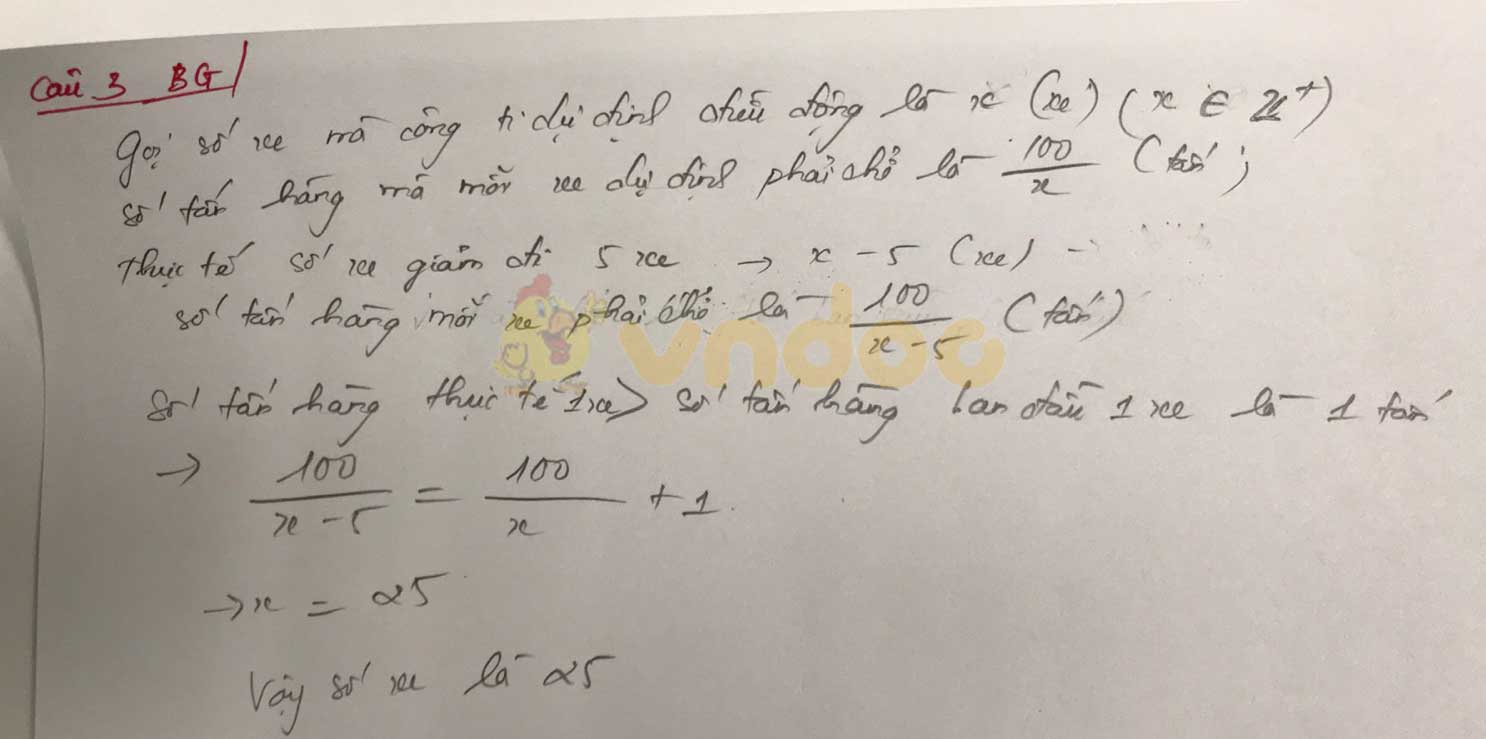 Câu 3 BG
Gọi số xe mà công ti dự định điều động là x (xe) (x ∈ Z⁺)
số tấn hàng mà mỗi xe dự định phải chở là 100/x (tấn)
Thực tế số xe giảm đi 5 xe → x - 5 (xe)
số tấn hàng mỗi xe phải chở là 100/x-5 (tấn)
vndoc
Số tấn hàng thực tế 1 xe > số tấn hàng ban đầu 1 xe là 1 tấn
→ 100/x-5 = 100/x + 1.
→ x = 25
Vậy số xe là 25